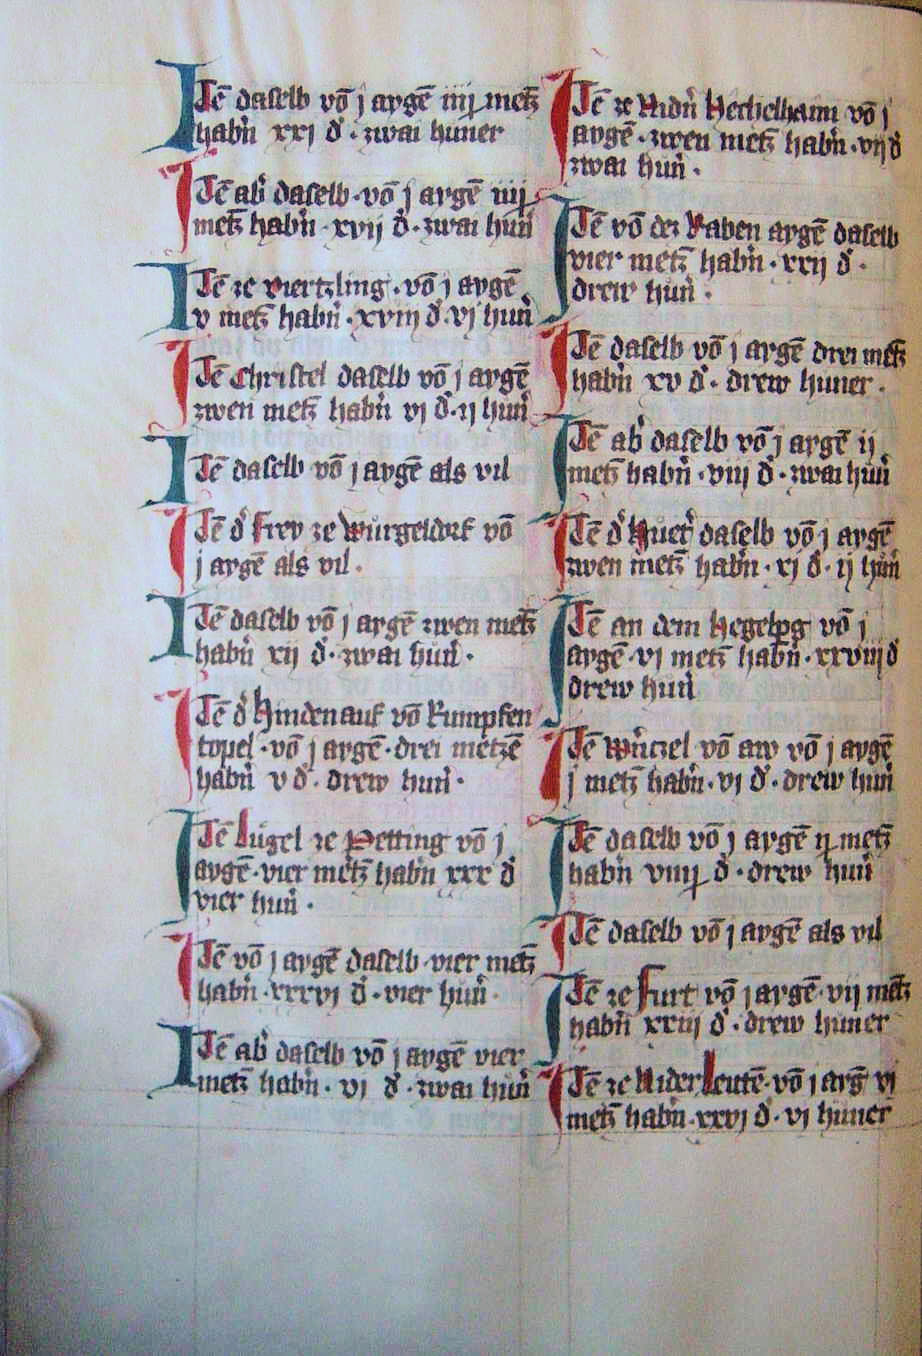 Itē daselb vō j aygē iiij metz̄
habn̄ xxj d̄ · zwai huner
Itē ab̄ daselb · vō j aygē iiij
metz̄ habn̄ · xvij d̄ · zwai hun̄
Itē ze viertzling · vō j aygē
v metz̄ habn̄ · xviij d̄ · vj hun̄
Itē Christel daselb vō j aygē
zwen metz̄ habn̄ vj d̄ · ij hun̄
Itē daselb vō j aygē als vil
Itē d̄ frey ze Wůrgeldorf vō
j aygē als vil ·
Itē daselb vō j aygē zwen metz̄
habn̄ xij d̄ · zwai hun̄ ·
Itē d̄ Hindenauf vō Rumpfen
topel · vō j aygē · drei metzē
habn̄ v d̄ · drew hun̄ ·
Itē Lůgel ze Petting vō j
aygē · vier metz̄ habn̄ xxx d̄
vier hun̄ ·
Itē vō j aygē daselb · vier metz̄
habn̄ · xxxvj d̄ · vier hun̄ ·
Itē ab̄ daselb vō j aygē vier
metz̄ habn̄ · vj d̄ · zwai hun̄
Itē ze Nidn̄ Hechelhaim vō j
aygē · zwen metz̄ habn̄ · vij d̄
zwai hun̄ ·
Itē vō der Raben aygē daselb
vier metz̄ habn̄ · xxij d̄ ·
drew hun̄ ·
Itē daselb vō j aygē drei metz̄
habn̄ xv d̄ · drew huner ·
Itē ab̄ daselb vō j aygē ij
metz̄ habn̄ · viij d̄ · zwai hun̄
Itē d̄ Huet̄ daselb vō j aygē
zwen metz̄ habn̄ · xj d̄ · ij hun̄
Itē an dem Hegelpg vō j
aygē · vj metz̄ habn̄ · xxviij d̄
drew hun̄
Itē Wn̄czel vō aw vō j aygē
j metz̄ habn̄ · vj d̄ · drew hun̄
Itē daselb vō j aygē ij metz̄
habn̄ viiij d̄ · drew hun̄
Itē daselb vō j aygē als vil
Itē ze Furt vō j aygē · vij metz̄
habn̄ xxiij d̄ · drew huner
Itē ze Nider Leutē · vō j aygē vj
metz̄ habn̄ · xxvj d̄ · vj huner